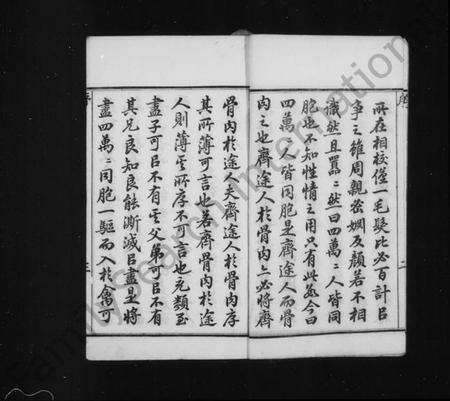 序
所在相校僅一毛髮比必百計以
爭之雖周親密姻反顏若不相
識然且囂囂然曰四萬萬人皆同
胞也不知性情之用只有此最今曰
四萬萬人皆同胞是齊途人而骨
肉之也齊途人於骨肉亦必將齊
骨肉於途人夫齊途人於骨肉厚
其所薄可言也若齊骨肉於途
人則薄其所厚不可言也充類至
盡子可以不有其父弟可以不有
其兄良知良能澌滅以盡是將
盡四萬萬同胞一驅而入於禽可
序
FamilySearch International